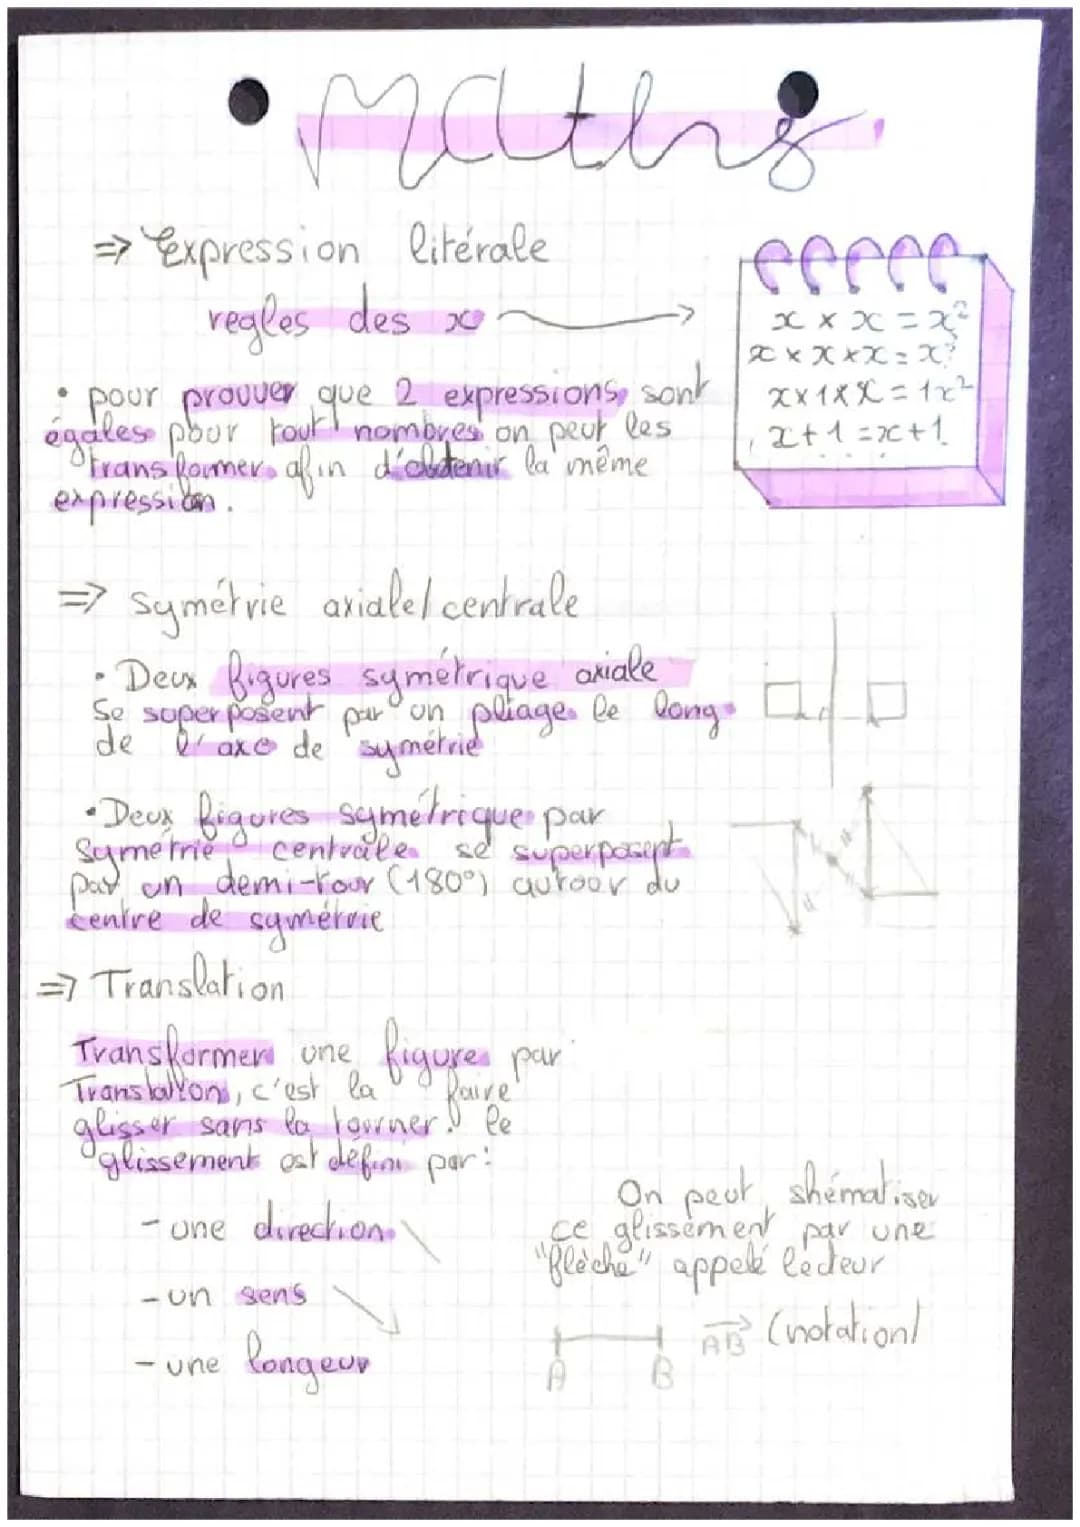 Maths
=> Expression litérale
regles des x
x × x = x²
x × x × x = x³
x × 1 × x = 1x²
x + 1 = x + 1.
• pour prouver que 2 expressions sont
égales pour tout nombres on peut les
transformer afin d'obtenir la même
expression.
=> Symétrie axiale/centrale
• Deux figures symétrique axiale
Se superposent par un pliage le long
de l'axe de symétrie
• Deux figures symétrique par
Symétrie centrale se superposent
par un demi-tour (180°) autour du
centre de symétrie
=> Translation
Transformer une figure par
Translation, c'est la faire
glisser sans la tourner. le
glissement est défini par :
- une direction
- un sens
- une longeur
On peut shématiser
ce glissement par une
"flèche" appelé vecteur
A B AB (notation)